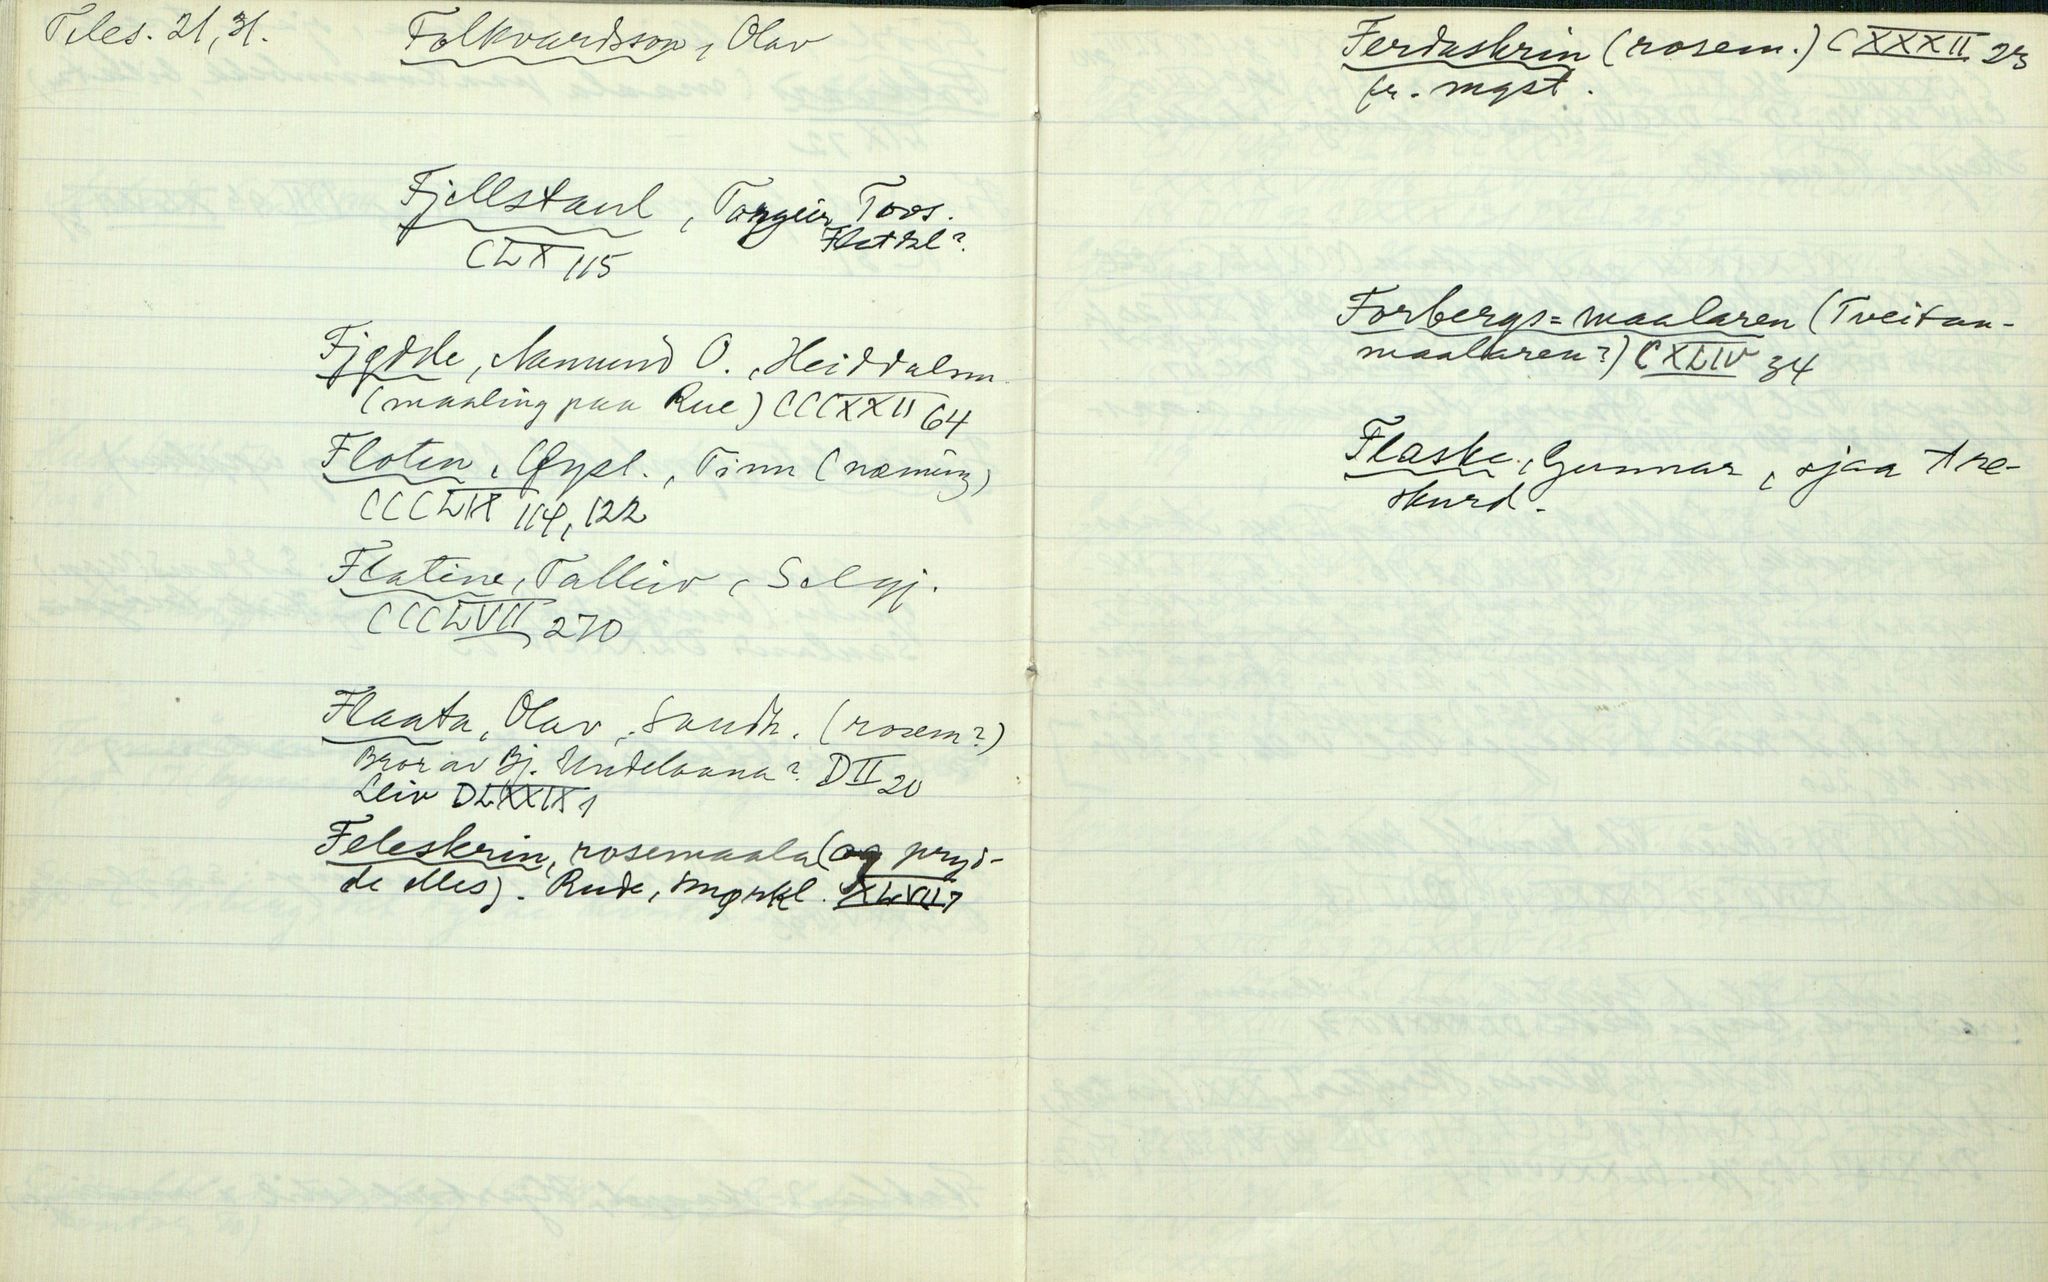 Teles. 21, 31. Folkvardsson, Olav
Fjellstaul, Torgeir Tovs.
Flatdal?
CLX 115
Fjødde, Aamund O., Heiddalsm.
(maaling paa Rue) CCCXXII 64
Floten, Gysl., Tinn (næming)
CCCLIX 114, 122
Flatine, Talleiv, Selgj.
CCCLVII 270
Flaata, Olav, Saudh. (rosem?)
Bror av Bj. Undelaana? DII 20
Leiv DLXXIX 1
Feleskrin, rosemaala (og pryd-
de elles). Rude, Mørkl. XLVII 7
Ferdaskrin (rosem.) CXXXII 23
fr. mgst.
Forbergs=maalaren (Tveitan-
maalaren?) CXLIV 34
Flaske, Gunnar, sjaa tre-
skurd.